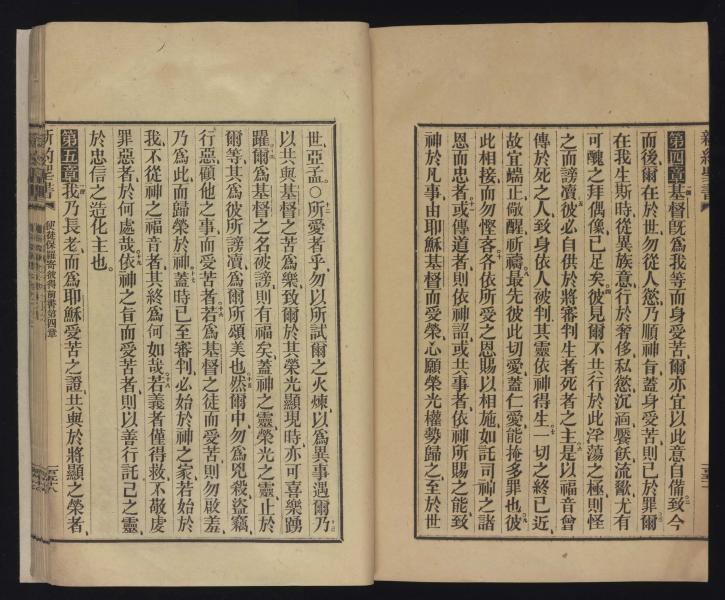 第四章基督旣爲我等而身受苦爾亦宜以此意自備致今
而後爾在於世勿從人慾乃順神旨蓋身受苦則已於罪爾
在我生斯時從異族意行於奢侈私慾沉湎饜飫流歠尤有
可醜之拜偶像已足矣彼見爾不共行於此淫蕩之極則怪
之而謗瀆彼必自供於將審判生者死者之主是以福音曾
傳於死之人致身依人被判其靈依神得生一切之終已近
故宜端正儆醒祈禱最先彼此切愛蓋仁愛能掩多罪也彼
此相接而勿慳吝各依所受之恩賜以相施如託司神之諸
恩而忠者或傳道者則依神詔或共事者依神所賜之能致
神於凡事由耶穌基督而受榮心願榮光權勢歸之至於世
世亞孟○所愛者乎勿以所試爾之火煉以爲異事遇爾乃
以共與基督之苦爲樂致爾於其榮光顯現時亦可喜樂踴
躍爾爲基督之名被謗則有福矣蓋神之靈榮光之靈止於
爾等其爲彼所謗瀆爲爾所頌美也然爾中勿爲兇殺盜竊
行惡顧他之事而受苦者若爲基督之徒而受苦則勿啟羞
乃爲此而歸榮於神蓋時已至審判必始於神之家若始於
我不從神之福音者其終爲何如哉若義者僅得救不敬虔
罪惡者於何處哉依神之旨而受苦者則以善行託己之靈
於忠信之造化主也
第五章我乃長老而爲耶穌受苦之證共與於將顯之榮者
新約聖書